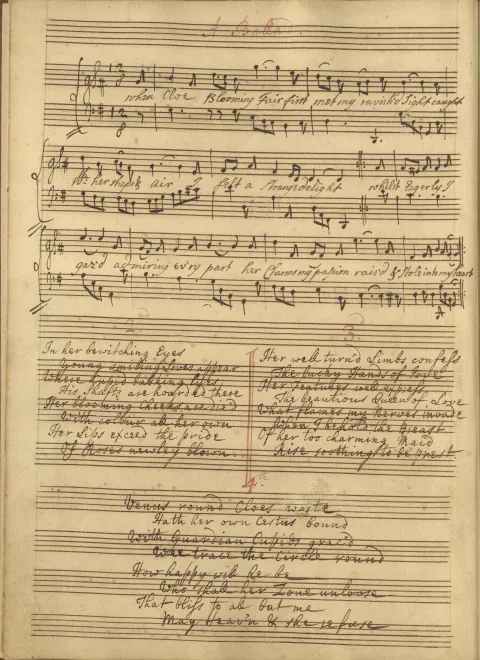 A Ballad
when Cloe Blooming Fair first met my ravish'd Sight caught
her shape & Air I felt a strange delight whilst Eagerly I
gaz'd admiring ev'ry part her Charms my passion rais'd & Stole into my heart
2.
In her bewitching Eyes
Young smiling Loves appear
Where Cupid basking lyes
His Shafts are hoarded there
Her blooming Cheeks are dy'd
With colour all her own
Her Lips exceed the pride
Of Roses newley blown
3.
Her well turn'd Limbs confess
The lucky Hand of Jove
Her features well express
The beautious Queen of Love
What flames my Nerves invade
When I behold the Breast
Of her too charming Maid
Rise soothing to be prest
4.
Venus round Cloes waste
Hath her own Cestus bound
With Guardian Cupids grac'd
Who trace the Circle round
How happy will he be
Who shall her Zone unloose
That bliss to all but me
May Heav'n & she refuse